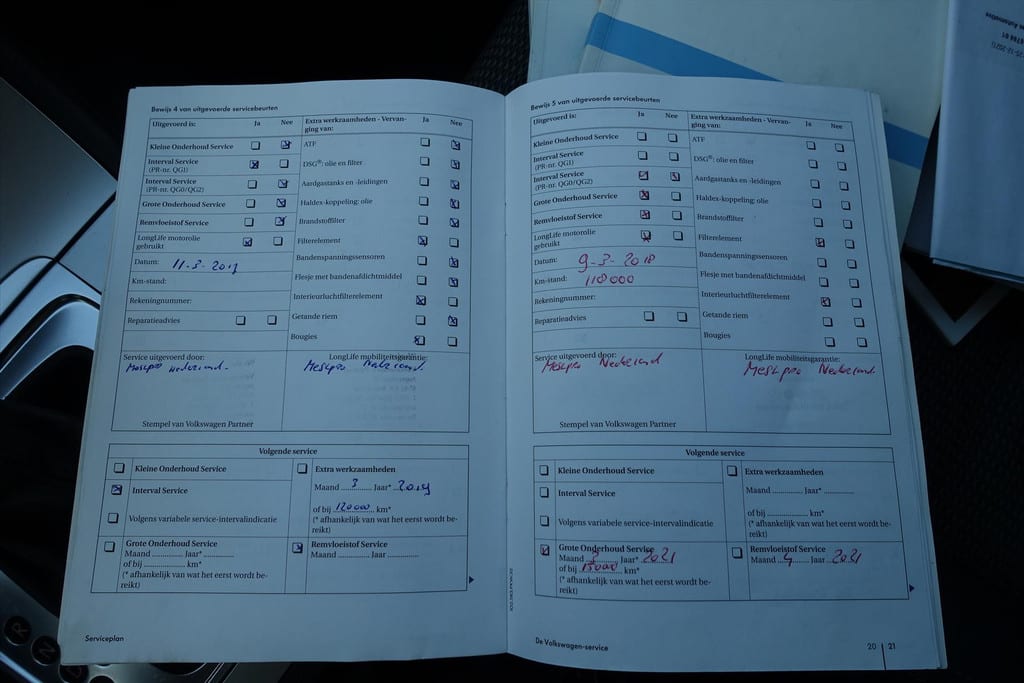 Bewijs 4 van uitgevoerde servicebeurten
Uitgevoerd is: Ja Nee
Kleine Onderhoud Service
Interval Service
(PR-nr. QG1)
Interval Service
(PR-nr. QG0/QG2)
Grote Onderhoud Service
Remvloeistof Service
LongLife motorolie
gebruikt
Datum: 11-3-2019
Km-stand:
Rekeningnummer:
Reparatieadvies
Extra werkzaamheden - Vervan-
ging van: Ja Nee
ATF
DSG®: olie en filter
Aardgastanks en -leidingen
Haldex-koppeling: olie
Brandstoffilter
Filterelement
Bandenspanningssensoren
Flesje met bandenafdichtmiddel
Interieurluchtfilterelement
Getande riem
Bougies
Service uitgevoerd door:
Nederland.
Stempel van Volkswagen Partner
LongLife mobiliteitsgarantie:
Nederland.
Volgende service
Kleine Onderhoud Service
Interval Service
Volgens variabele service-intervalindicatie
Grote Onderhoud Service
Maand ............ Jaar* ............
of bij ............... km*
(* afhankelijk van wat het eerst wordt be-
reikt)
Extra werkzaamheden
Maand 3 Jaar* 2019
of bij 120000 km*
(* afhankelijk van wat het eerst wordt be-
reikt)
Remvloeistof Service
Maand ............ Jaar ............
Serviceplan
Bewijs 5 van uitgevoerde servicebeurten
Uitgevoerd is: Ja Nee
Kleine Onderhoud Service
Interval Service
(PR-nr. QG1)
Interval Service
(PR-nr. QG0/QG2)
Grote Onderhoud Service
Remvloeistof Service
LongLife motorolie
gebruikt
Datum: 9-3-2018
Km-stand: 118000
Rekeningnummer:
Reparatieadvies
Extra werkzaamheden - Vervan-
ging van: Ja Nee
ATF
DSG®: olie en filter
Aardgastanks en -leidingen
Haldex-koppeling: olie
Brandstoffilter
Filterelement
Bandenspanningssensoren
Flesje met bandenafdichtmiddel
Interieurluchtfilterelement
Getande riem
Bougies
Service uitgevoerd door:
Nederland
Stempel van Volkswagen Partner
LongLife mobiliteitsgarantie:
Nederland.
Volgende service
Kleine Onderhoud Service
Interval Service
Volgens variabele service-intervalindicatie
Grote Onderhoud Service
Maand Jaar* 2021
of bij km*
(* afhankelijk van wat het eerst wordt be-
reikt)
Extra werkzaamheden
Maand ............ Jaar* ............
of bij ............... km*
(* afhankelijk van wat het eerst wordt be-
reikt)
Remvloeistof Service
Maand 4 Jaar 2021
De Volkswagen-service
20 21
R
N